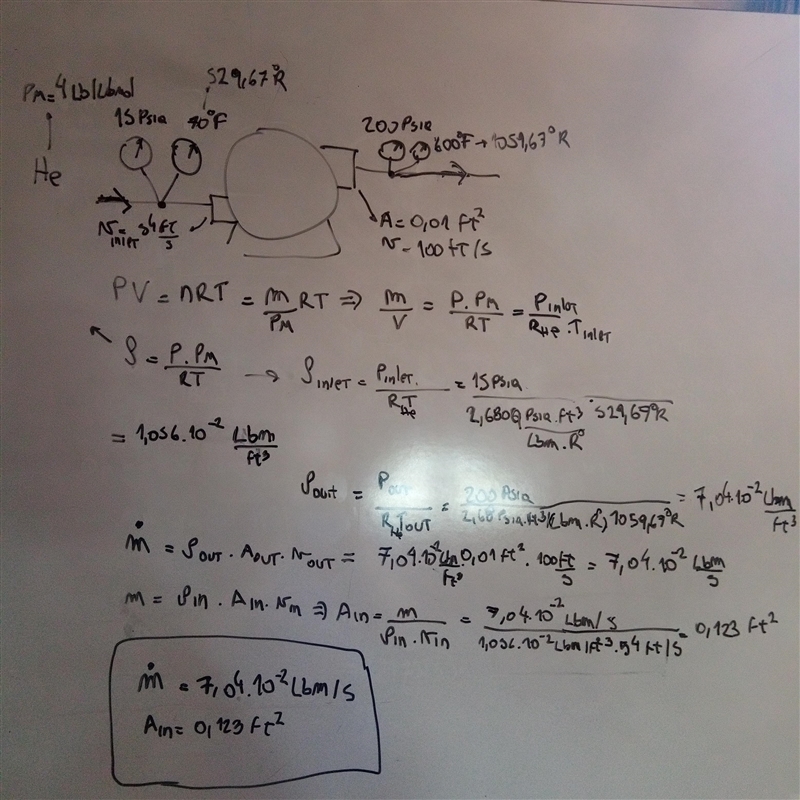 529,67°R
PM=4 Lb/Lbmol
15 Psia 70°F
200 Psia
600°F → 1059,67°R
He
N inlet = 54 ft/s
A = 0,01 ft²
N = 100 ft/s
PV = nRT = m/PM RT ⇒ m/V = P.PM/RT = Pinlet/RHe.Tinlet
ρ = P.PM/RT → ρinlet = Pinlet./RHeT = 15 Psia/2,6800 Psia.ft³/Lbm.R° . 529,67°R
= 1,056.10⁻² Lbm/ft³
ρout = Pout/RHeTOUT = 200 Psia/2,68 Psia.ft³/(Lbm.R°) 1059,67°R = 7,04.10⁻² Lbm/ft³
ṁ = ρOUT . AOUT . NOUT = 7,04.10⁻² Lm/ft³ 0,01 ft² . 100 ft/s = 7,04.10⁻² Lbm/s
m = ρin . Ain . Nin ⇒ Ain = m/ρin . Nin = 7,04.10⁻² Lbm/s/1,056.10⁻² Lbm/ft³ . 54 ft/s = 0,123 ft²
ṁ = 7,04.10⁻² Lbm/s
Ain = 0,123 ft²